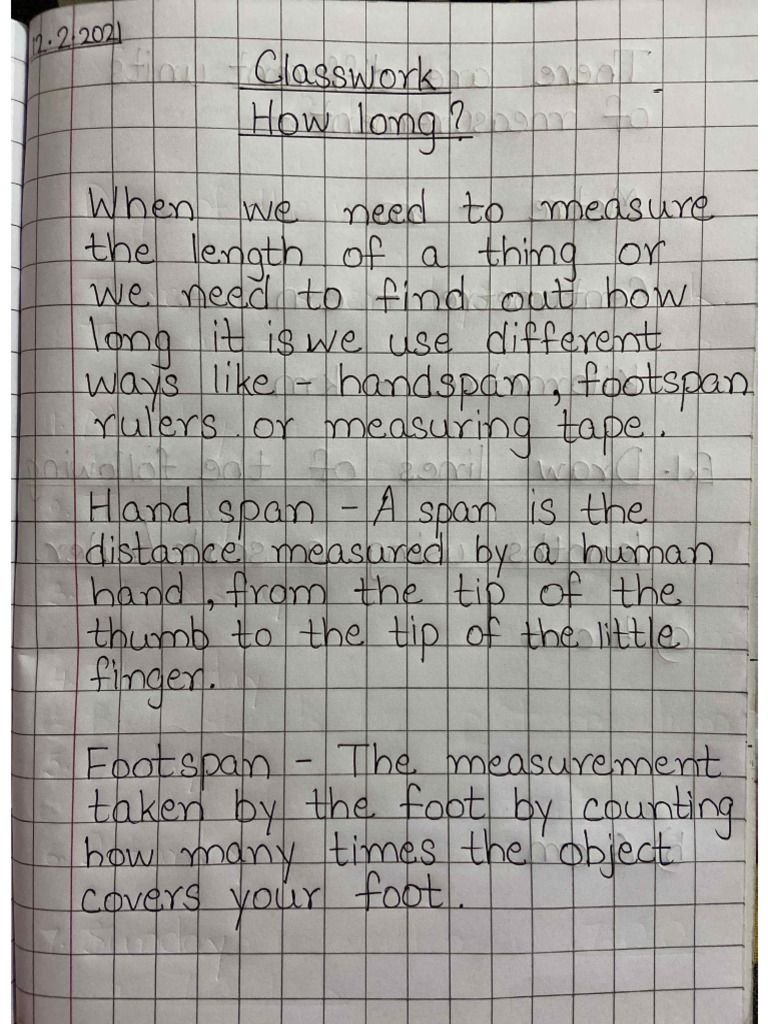 12.2.2021
Classwork
How long?
When we need to measure
the length of a thing or
we need to find out how
long it is we use different
ways like - handspan, footspan
rulers or measuring tape.
Hand span - A span is the
distance measured by a human
hand, from the tip of the
thumb to the tip of the little
finger.
Footspan - The measurement
taken by the foot by counting
how many times the object
covers your foot.